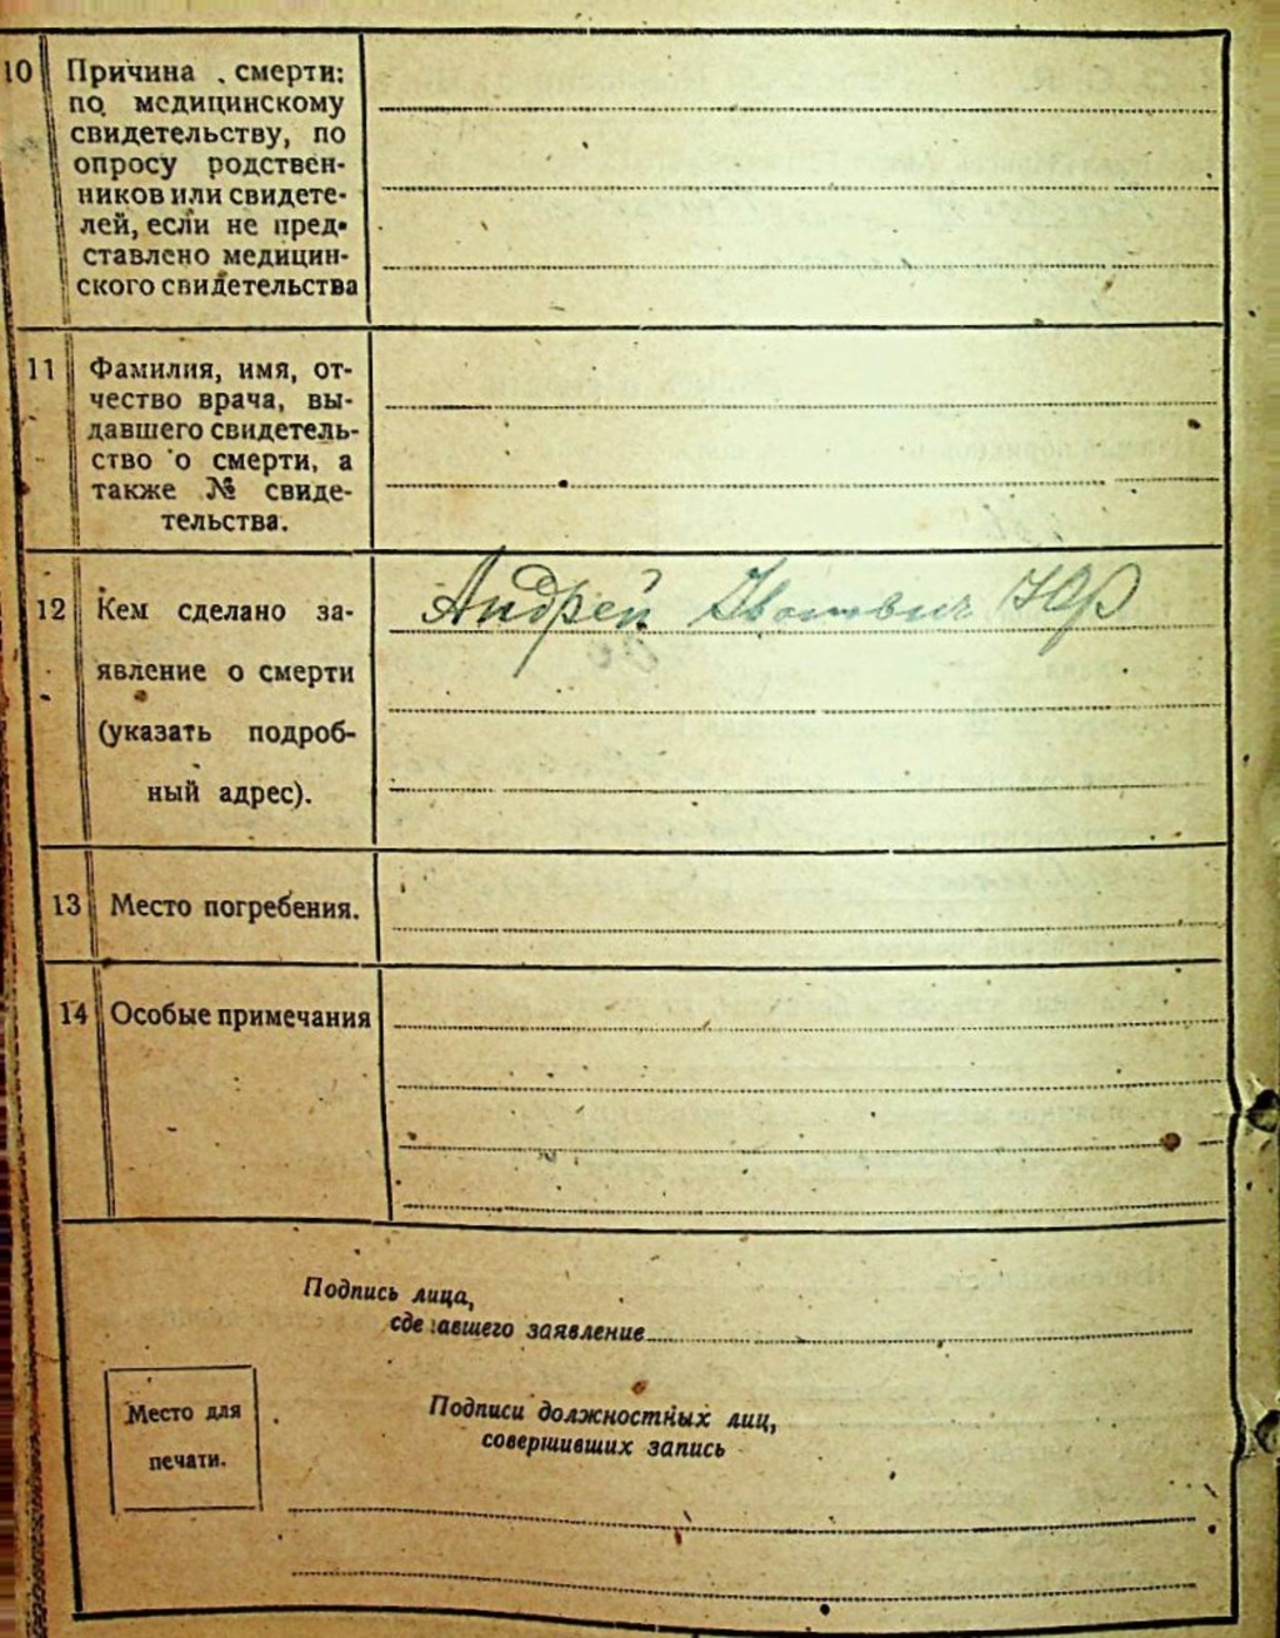 10 Причина смерти:
по медицинскому
свидетельству, по
опросу родствен-
ников или свидете-
лей, если не пред-
ставлено медицин-
ского свидетельства
11 Фамилия, имя, от-
чество врача, вы-
давшего свидетель-
ство о смерти, а
также № свиде-
тельства.
12 Кем сделано за-
явление о смерти
(указать подроб-
ный адрес).
Андрей Юр
13 Место погребения.
14 Особые примечания
Подпись лица,
сде авшего заявление
Место для
печати.
Подписи должностных лиц,
совершивших запись